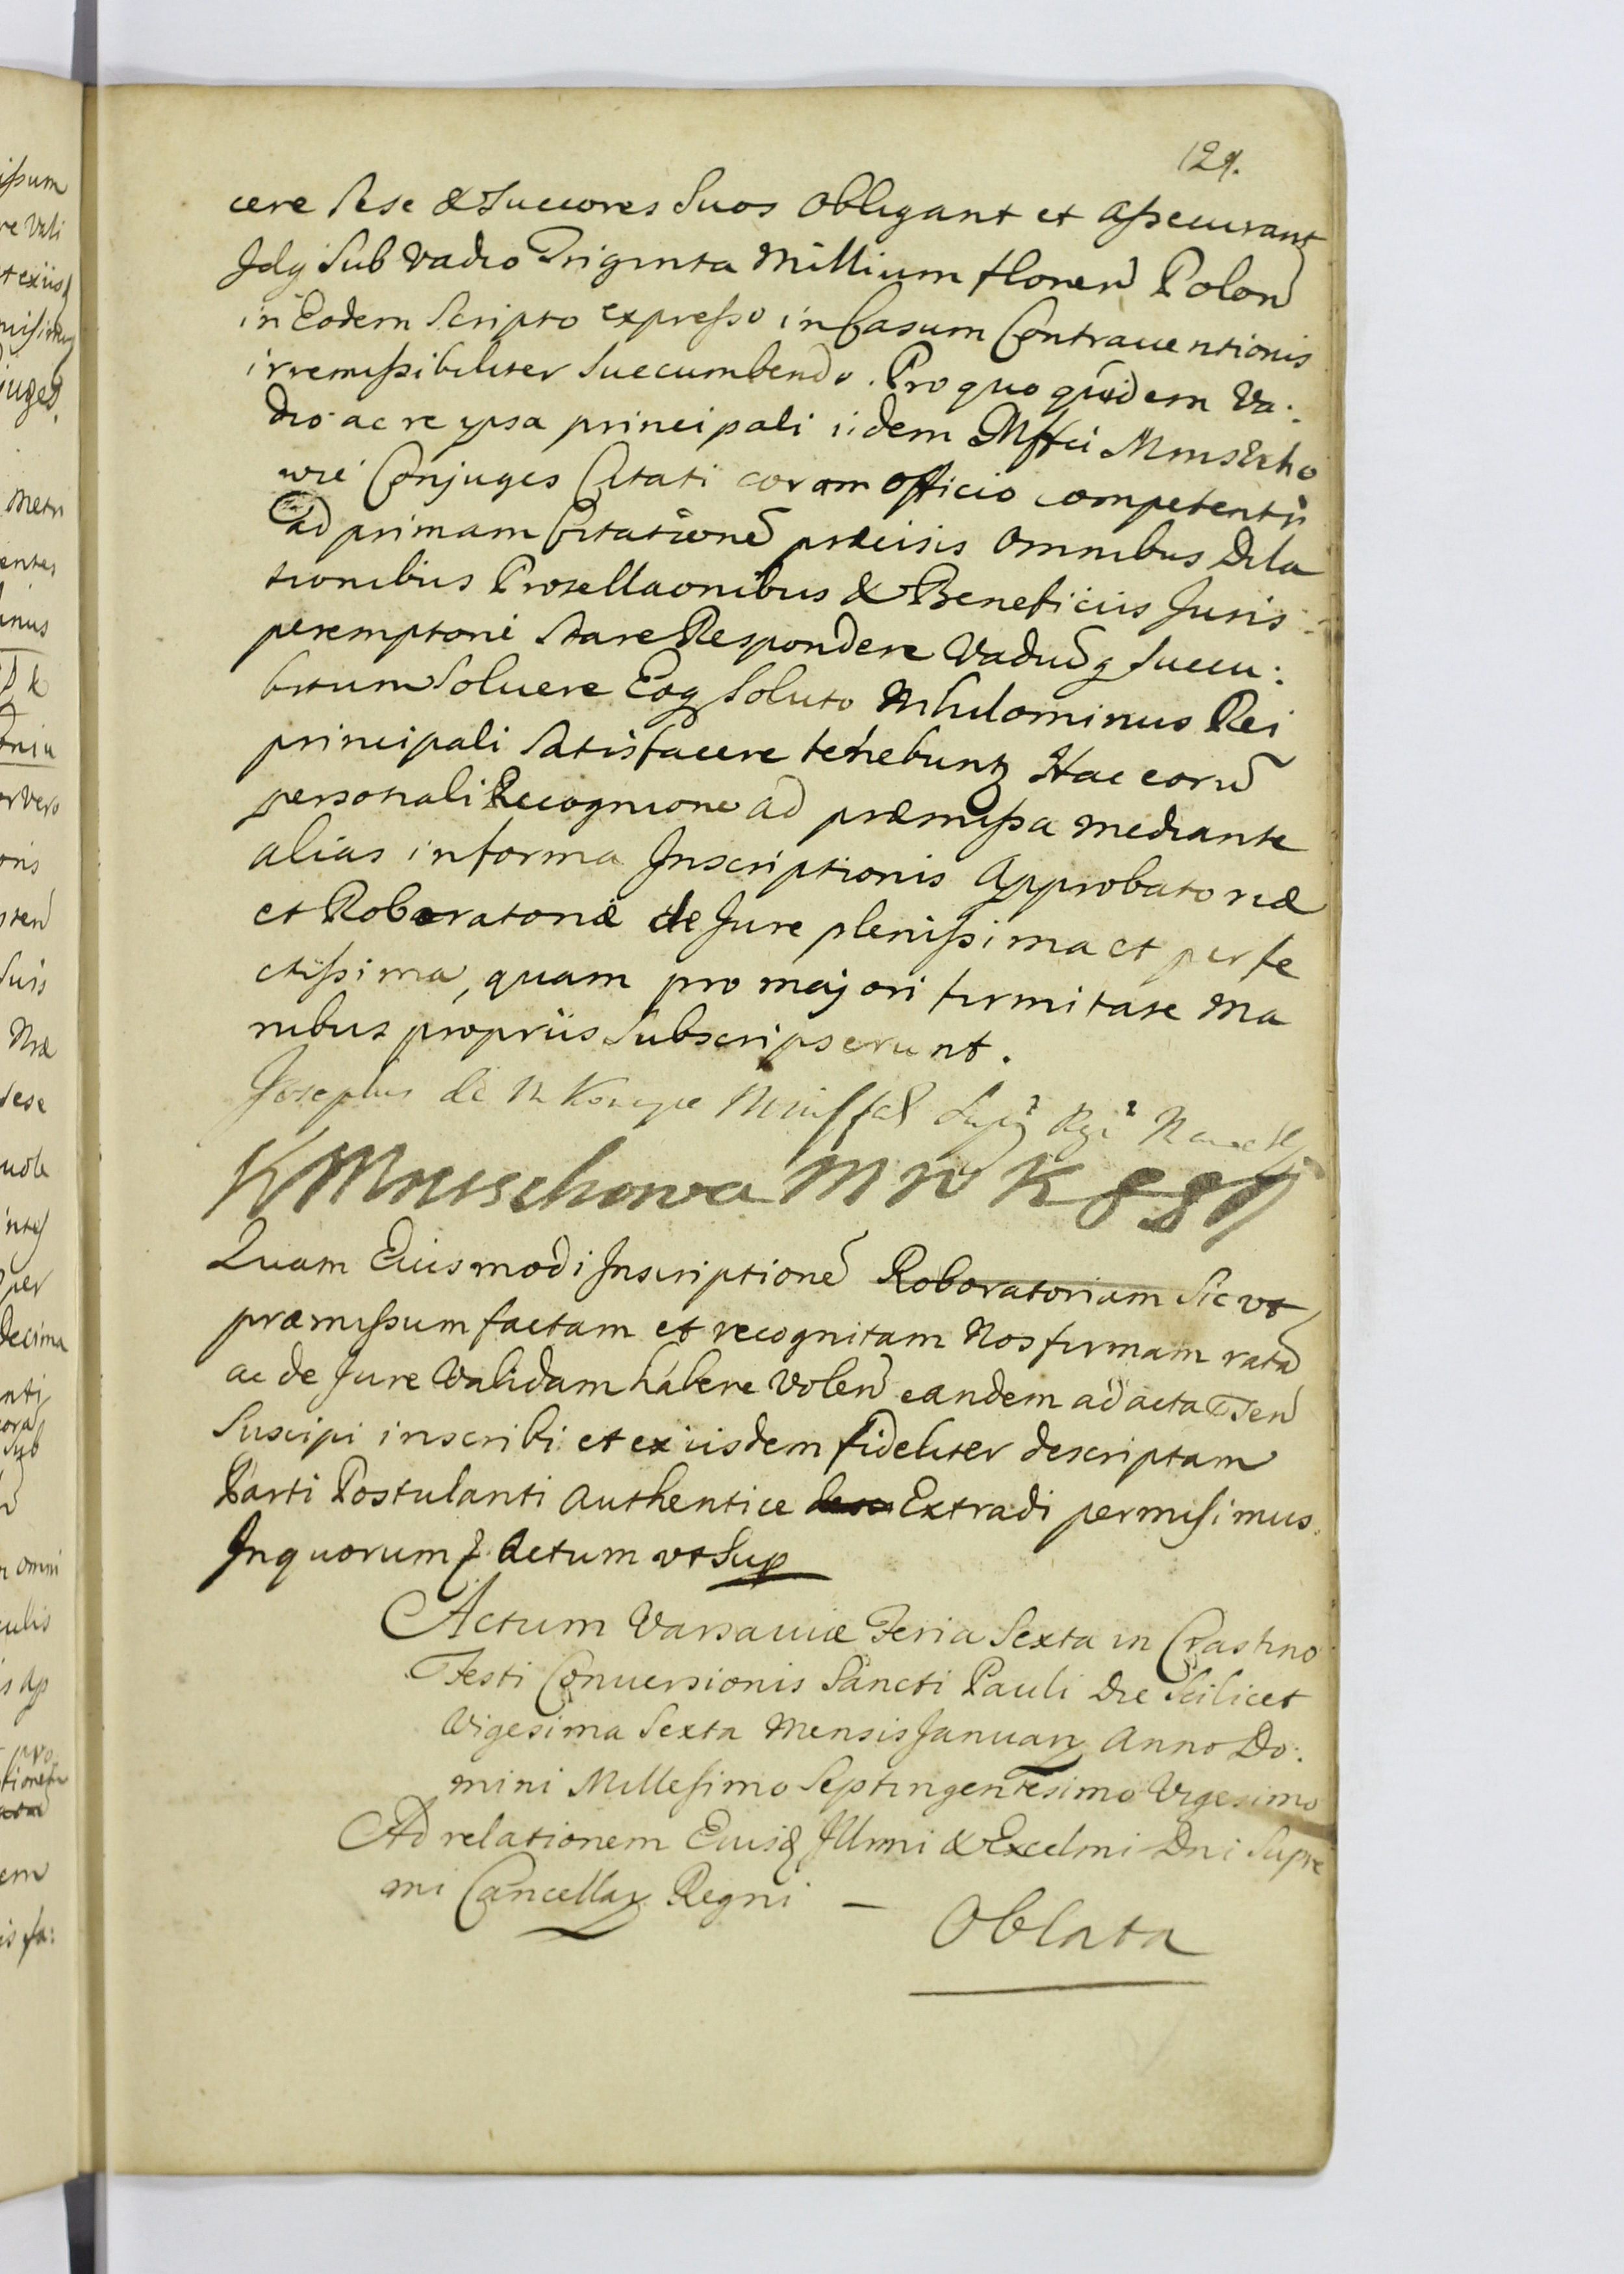 129.
cere Sese & Succores Suos obligant et assecurant
Idq Sub vadio Triginta Millium floren Polon
in Eodem Scripto expresso in Casum Contrauentionis
irremissibiliter Succumbendo. Pro quo quidem Va:
dio ac re ipsa principali iidem Mffci Mniszcho
wie Conjuges Citati coram officio competenti
ad primam Citatione præcisis omnibus Dila
tionibus Prosellaonibus & Beneficiis Juris
peremptorie Stare Respondere Vadiuq Succu:
bitum Soluere Eoq Soluto Nihilominus Rei
principali Satisfacere tenebunt Hac eoru
personali Recognicione ad præmissa mediante
alias in forma Inscriptionis Approbatoriæ
et Roboratoriæ de Jure plenissima et perfe
ctissima, quam pro majori firmitate Ma
nibus propriis Subscripserunt.
Josephus de M
KMnischowa M W K
Quam Eiusmodi Inscriptione Roboratoriam Sic vt
præmissum factam et recognitam Nos firmam rata
ac de Jure Validam habere Volen eandem ad acta Psen
Suscipi inscribi et ex iisdem fideliter descriptam
Parti Postulanti Authentice Extradi permisimus.
In quorum Actum vt Sup
Actum Varsauiæ Feria Sexta in Crastino
Festi Conuersionis Sancti Pauli Die Scilicet
Vigesima Sexta Mensis January Anno Do:
mini Millesimo Septingentesimo Vigesimo
Ad relationem Eiusd Illmi & Excelmi Dni Supre
mi Cancellar Regni —
Oblata